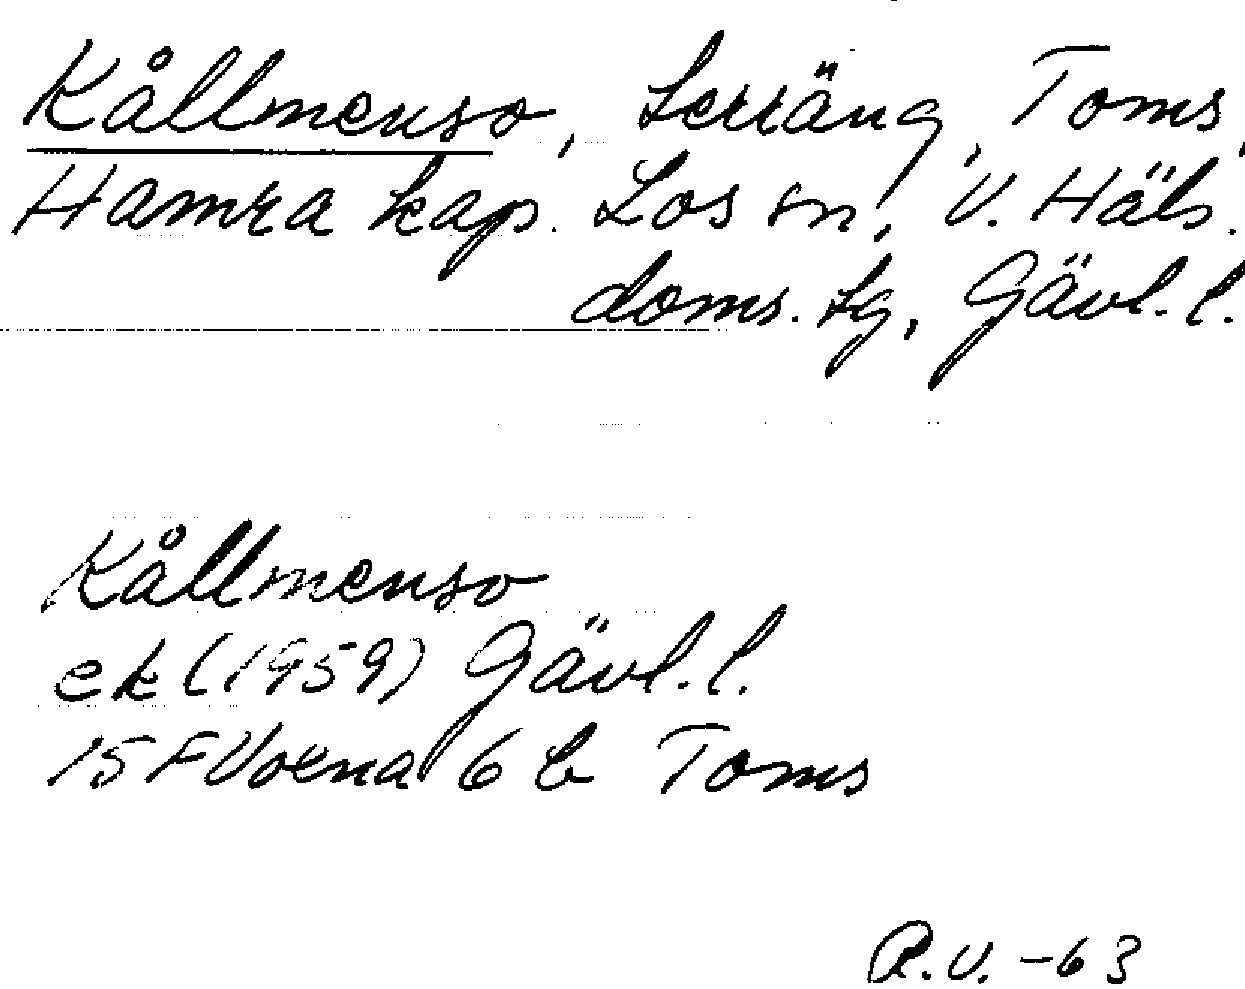 Kållmenso, terräng, Toms,
Hamra kap. Los sn, V. Häls.
doms. tg, Gävl. l.
Kållmenso
ek (1959) Gävl. l.
15 F Voxna 6 b Toms
R.V. -63